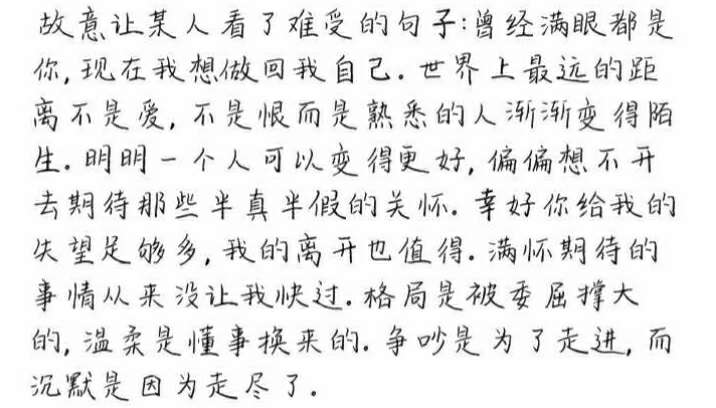 故意让某人看了难受的句子:曾经满眼都是
你,现在我想做回我自己.世界上最远的距
离不是爱,不是恨而是熟悉的人渐渐变得陌
生.明明一个人可以变得更好,偏偏想不开
去期待那些半真半假的关怀.幸好你给我的
失望足够多,我的离开也值得.满怀期待的
事情从来没让我快过.格局是被委屈撑大
的,温柔是懂事换来的.争吵是为了走进,而
沉默是因为走尽了.